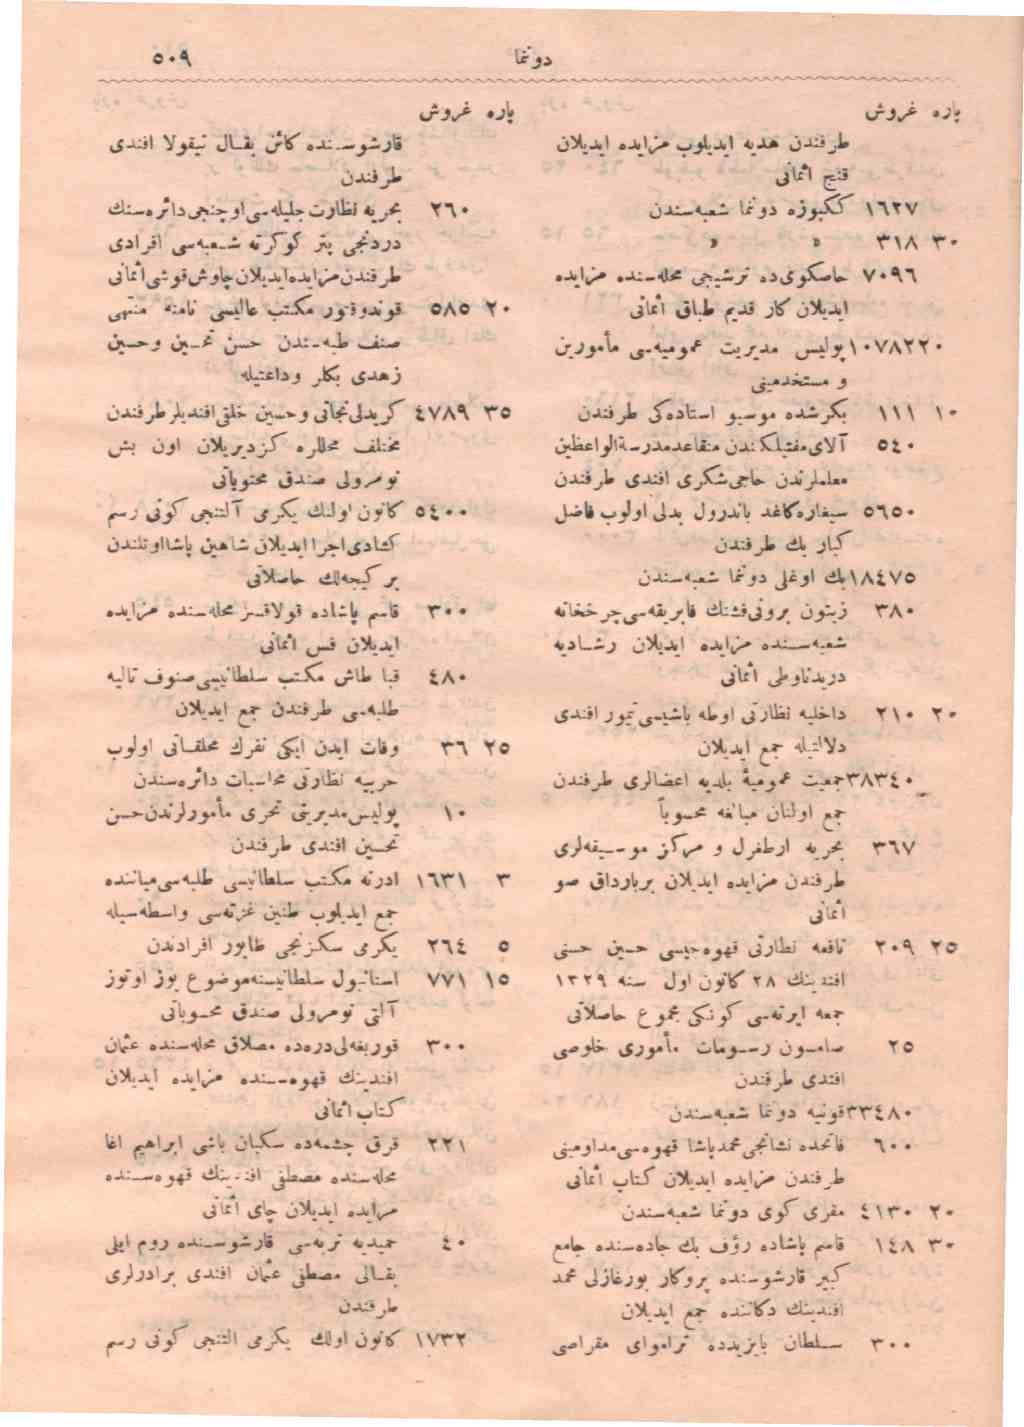 دوننما ٥٠٩
پاره غروش
طرفندن هديه ايديلوب مزايده ايديلان
قنج اثمانی
١٦٢٧ ككبوزه دوننما شعبه‌سندن
٣٠ ٣١٨ » »
٧٠٩٦ خاصكوی‌ده ترشيجی محله‌سنده مزايده
ايديلان كار قديم طباق اثمانی
١٠٧٨٢٢٠ پوليس مديريت عموميه‌سی مأمورين
و مستخدمينی
١٠ ١١١ بكرشده موسيو استاده‌كی طرفندن
٥٤٠ آلای‌مفتيلكندن متقاعدمدرسةالواعظين
معلملرندن حاجی‌شكری افندی طرفندن
٥٦٥٠ سيغاره‌كاغد باندرول بدلی اولوب فاضل
كبار بك طرفندن
١٨٤٧٥ بك اوغلی دوننما شعبه‌سندن
٣٨٠ زيتون برونی‌فشنك فابريقه‌سی‌چرخخانه
شعبه‌سنده مزايده ايديلان رشاديه
دريدناوطی اثمانی
٢٠ ٢١٠ داخليه نظارتی اوطه باشيسی‌تيمور افندی
دلالتيله جمع ايديلان
٣٨٣٤٠ جمعيت عموميهٔ بلديه اعضالری طرفندن
جمع اولنان مبالغه محسوباً
٣٦٧ بحريه ارطغرل و مركز موسيقه‌لری
طرفندن مزايده ايديلان بربارداق صو
اثمانی
٢٥ ٢٠٩ نافعه نظارتی قهوه‌جيسی حسين حسنی
افندينك ٢٨ كانون اول سنه ١٣٢٩
جمعه ايرته‌سی كونكی مجموع حاصلاتی
٢٥ صامسون رسومات مأموری خلوصی
افندی طرفندن
٣٣٤٨٠ قونيه دوننما شعبه‌سندن
٦٠٠ فاتحده نشانجی‌محمدپاشا قهوه‌سی‌مداومينی
طرفندن مزايده ايديلان كتاب اثمانی
٢٠ ٤١٣٠ مقری كوی دوننما شعبه‌سندن
٣٠ ١٤٨ قاسم پاشاده رؤف بك جاده‌سنده جامع
كبير قارشوسنده پروكار بورغازلی محمد
افندينك دكاننده جمع ايديلان
٣٠٠ سلطان بايزيدده تراموای مقراصی
پاره غروش
قارشوسنده كائن بقال نيقولا افندی
طرفندن
٢٦٠ بحريه نظارت جليله‌سی‌اوچنجی‌دائره‌سنك
دردنجی پتر كوكرته شعبه‌سی افرادی
طرفندن‌مزايده‌ايديلان‌چاوش‌قوشی‌اثمانی
٢٠ ٥٨٥ قوندوقتور مكتب عاليسی نامنه منتهی
صنف طلبه‌سندن حسن تحسين وحسين
زهدی بكلر وداعتيله
٣٥ ٤٧٨٩ كريدلی‌نجاتی وحسين خلقی‌افنديلرطرفندن
مختلف محللره كزديريلان اون بش
نومرولی صندق محتوياتی
٥٤٠٠ كانون اولنك يكرمی آلتنجی كونی رسم
كشادی‌اجراايديلان شاهين پاشااوتلندن
بر كيجه‌لك حاصلاتی
٣٠٠ قاسم پاشاده قولاقسز محله‌سنده مزايده
ايديلان فس اثمانی
٤٨٠ قبا طاش مكتب سلطانيسی‌صنوف تاليه
طلبه‌سی طرفندن جمع ايديلان
٢٥ ٣٦ وفات ايدن ايكی نفرك مخلفاتی اولوب
حربيه نظارتی محاسبات دائره‌سندن
١٠ پوليس‌مديريتی تحری مأمورلرندن‌حسن
تحسين افندی طرفندن
٣ ١٦٣١ ادرنه مكتب سلطانيسی طلبه‌سی‌مياننده
جمع ايديلوب طنين غزته‌سی واسطه‌سيله
٥ ٢٦٤ يكرمی سكزنجی طابور افرادندن
١٥ ٧٧١ استانبول سلطانيسنه‌موضوع يوز اوتوز
آلتی نومرولی صندق محسوباتی
٣٠٠ قوربغه‌لی‌دره‌ده مصلاق محله‌سنده عثمان
افندينك قهوه‌سنده مزايده ايديلان
كتاب اثمانی
٢٢١ قرق چشمه‌ده سكبان باشی ابراهيم اغا
محله‌سنده مصطفی افندينك قهوه‌سنده
مزايده ايديلان چای اثمانی
٤٠ حميديه تربه‌سی قارشوسنده روم ايلی
بقالی مصطفی عثمان افندی برادرلری
طرفندن
١٧٣٢ كانون اولك يكرمی التنجی كونی رسم